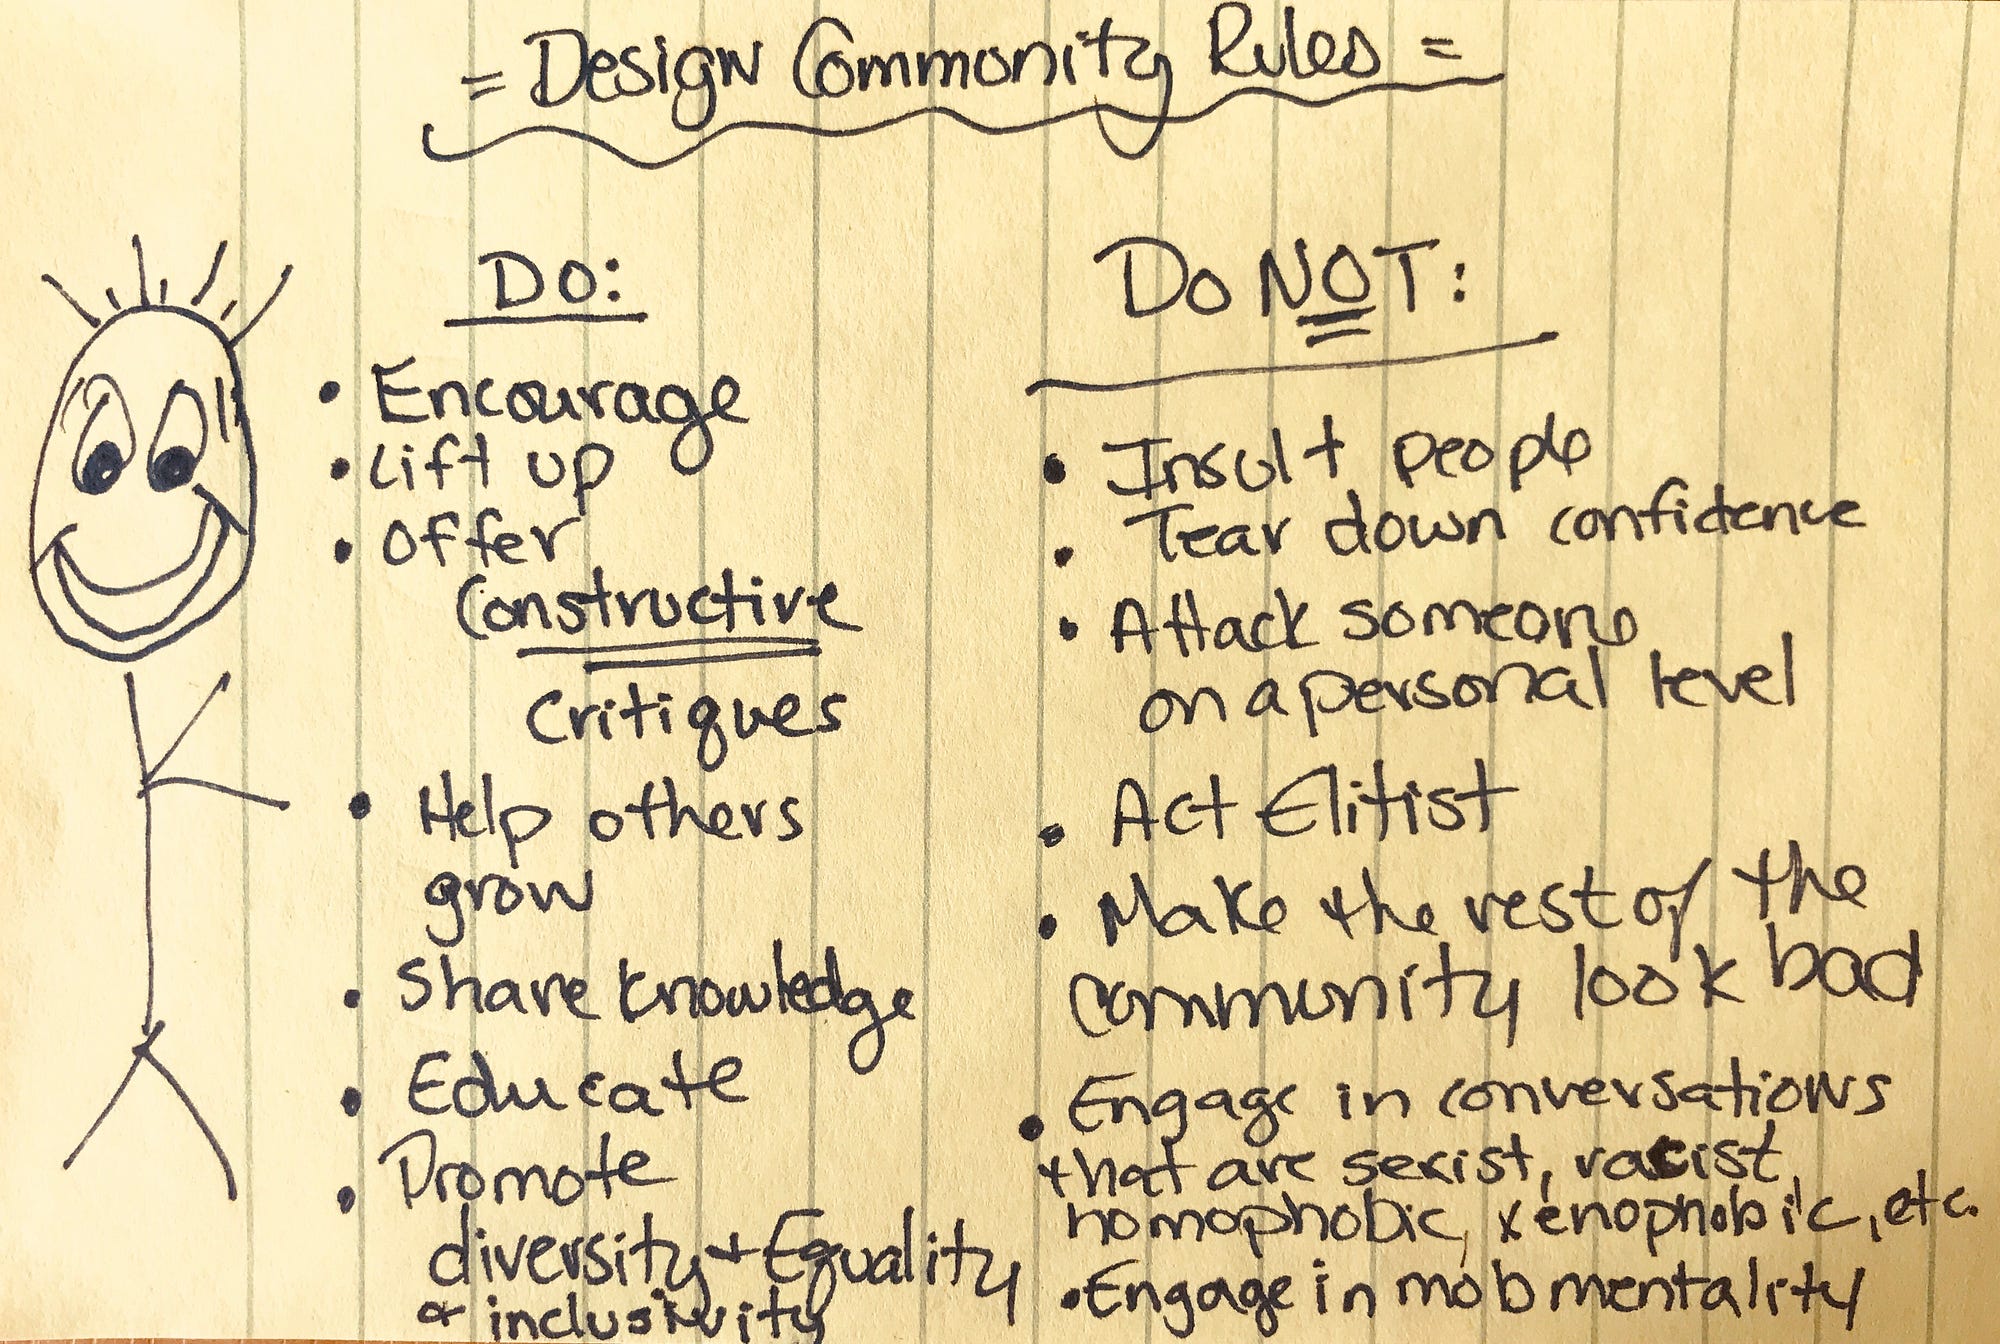 = Design Community Rules =
DO:
• Encourage
• Lift up
• Offer
Constructive
Critiques
• Help others
grow
• Share knowledge
• Educate
• Promote
diversity + Equality
& inclusivity
Do NOT:
• Insult people
• Tear down confidence
• Attack someone
on a personal level
• Act Elitist
• Make the rest of the
community look bad
• Engage in conversations
that are sexist, racist,
homophobic, xenophobic, etc.
• Engage in mob mentality